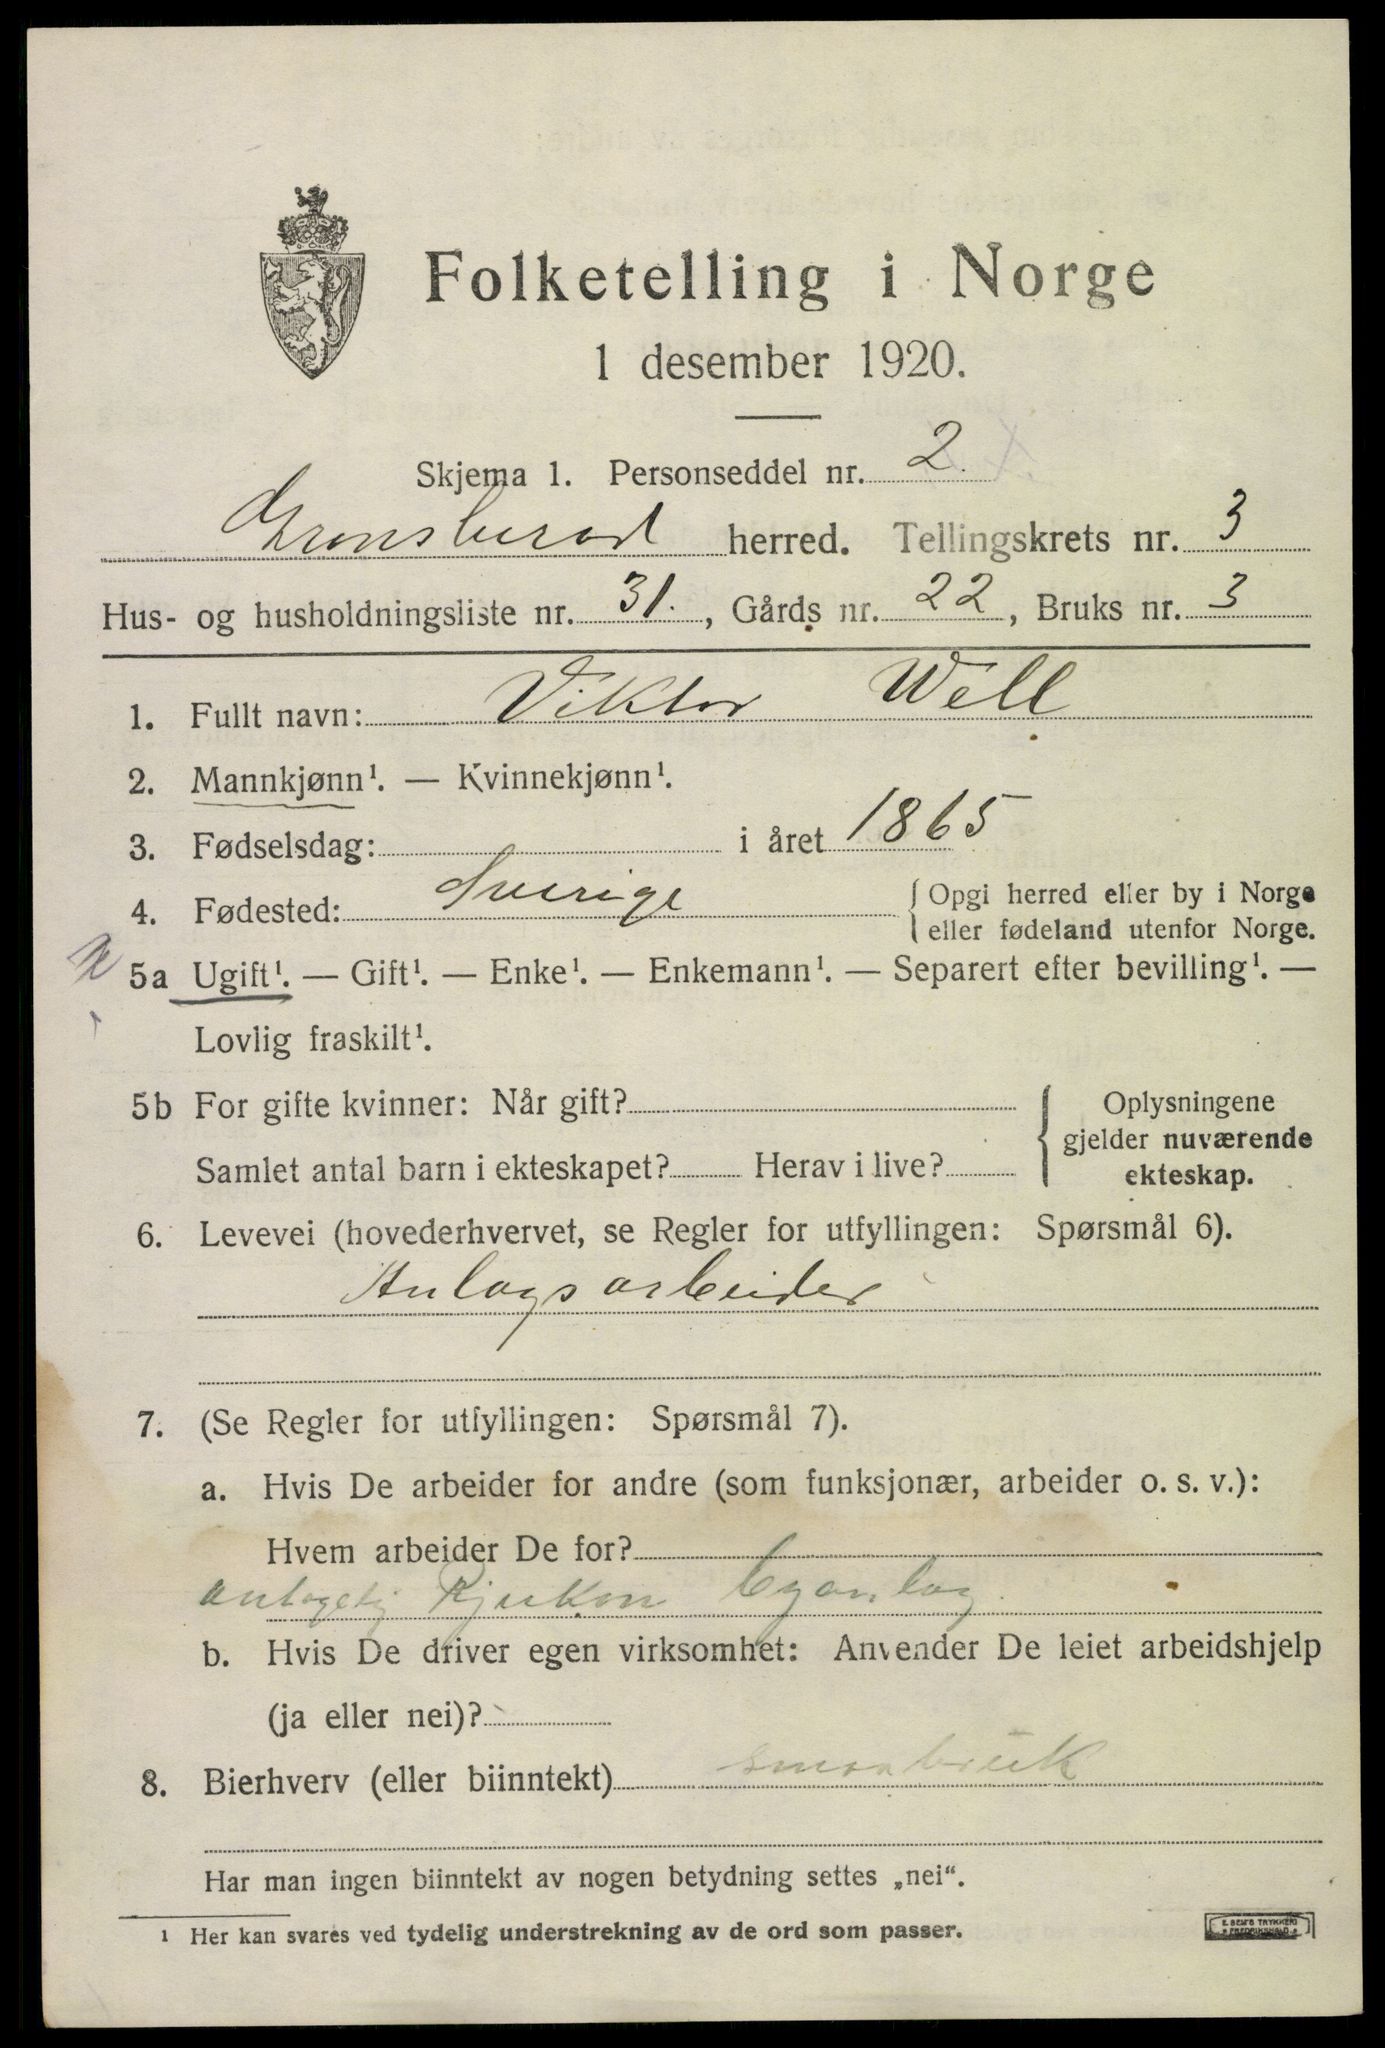 Folketelling i Norge
1 desember 1920.
Skjema 1. Personseddel nr. 2
herred. Tellingskrets nr. 3
Hus- og husholdningsliste nr. 31., Gårds nr. 22, Bruks nr. 3
1. Fullt navn: Viktor Well
2. Mannkjønn¹. — Kvinnekjønn¹.
3. Fødselsdag: i året 1865
4. Fødested: Sverige { Opgi herred eller by i Norge
eller fødeland utenfor Norge.
5a Ugift¹. — Gift¹. — Enke¹. — Enkemann¹. — Separert efter bevilling¹. —
Lovlig fraskilt¹.
5b For gifte kvinner: Når gift? { Oplysningene
gjelder nuværende
Samlet antal barn i ekteskapet? Herav i live?
ekteskap.
6. Levevei (hovederhvervet, se Regler for utfyllingen: Spørsmål 6).
Anlagsarbeider
7. (Se Regler for utfyllingen: Spørsmål 7).
a. Hvis De arbeider for andre (som funksjonær, arbeider o. s. v.):
Hvem arbeider De for?
Rjukan
b. Hvis De driver egen virksomhet: Anvender De leiet arbeidshjelp
(ja eller nei)?
8. Bierhverv (eller biinntekt) smaabruk
Har man ingen biinntekt av nogen betydning settes „nei“.
¹ Her kan svares ved tydelig understrekning av de ord som passer.
E. SEM'S TRYKKERI
FREDRIKSHALD